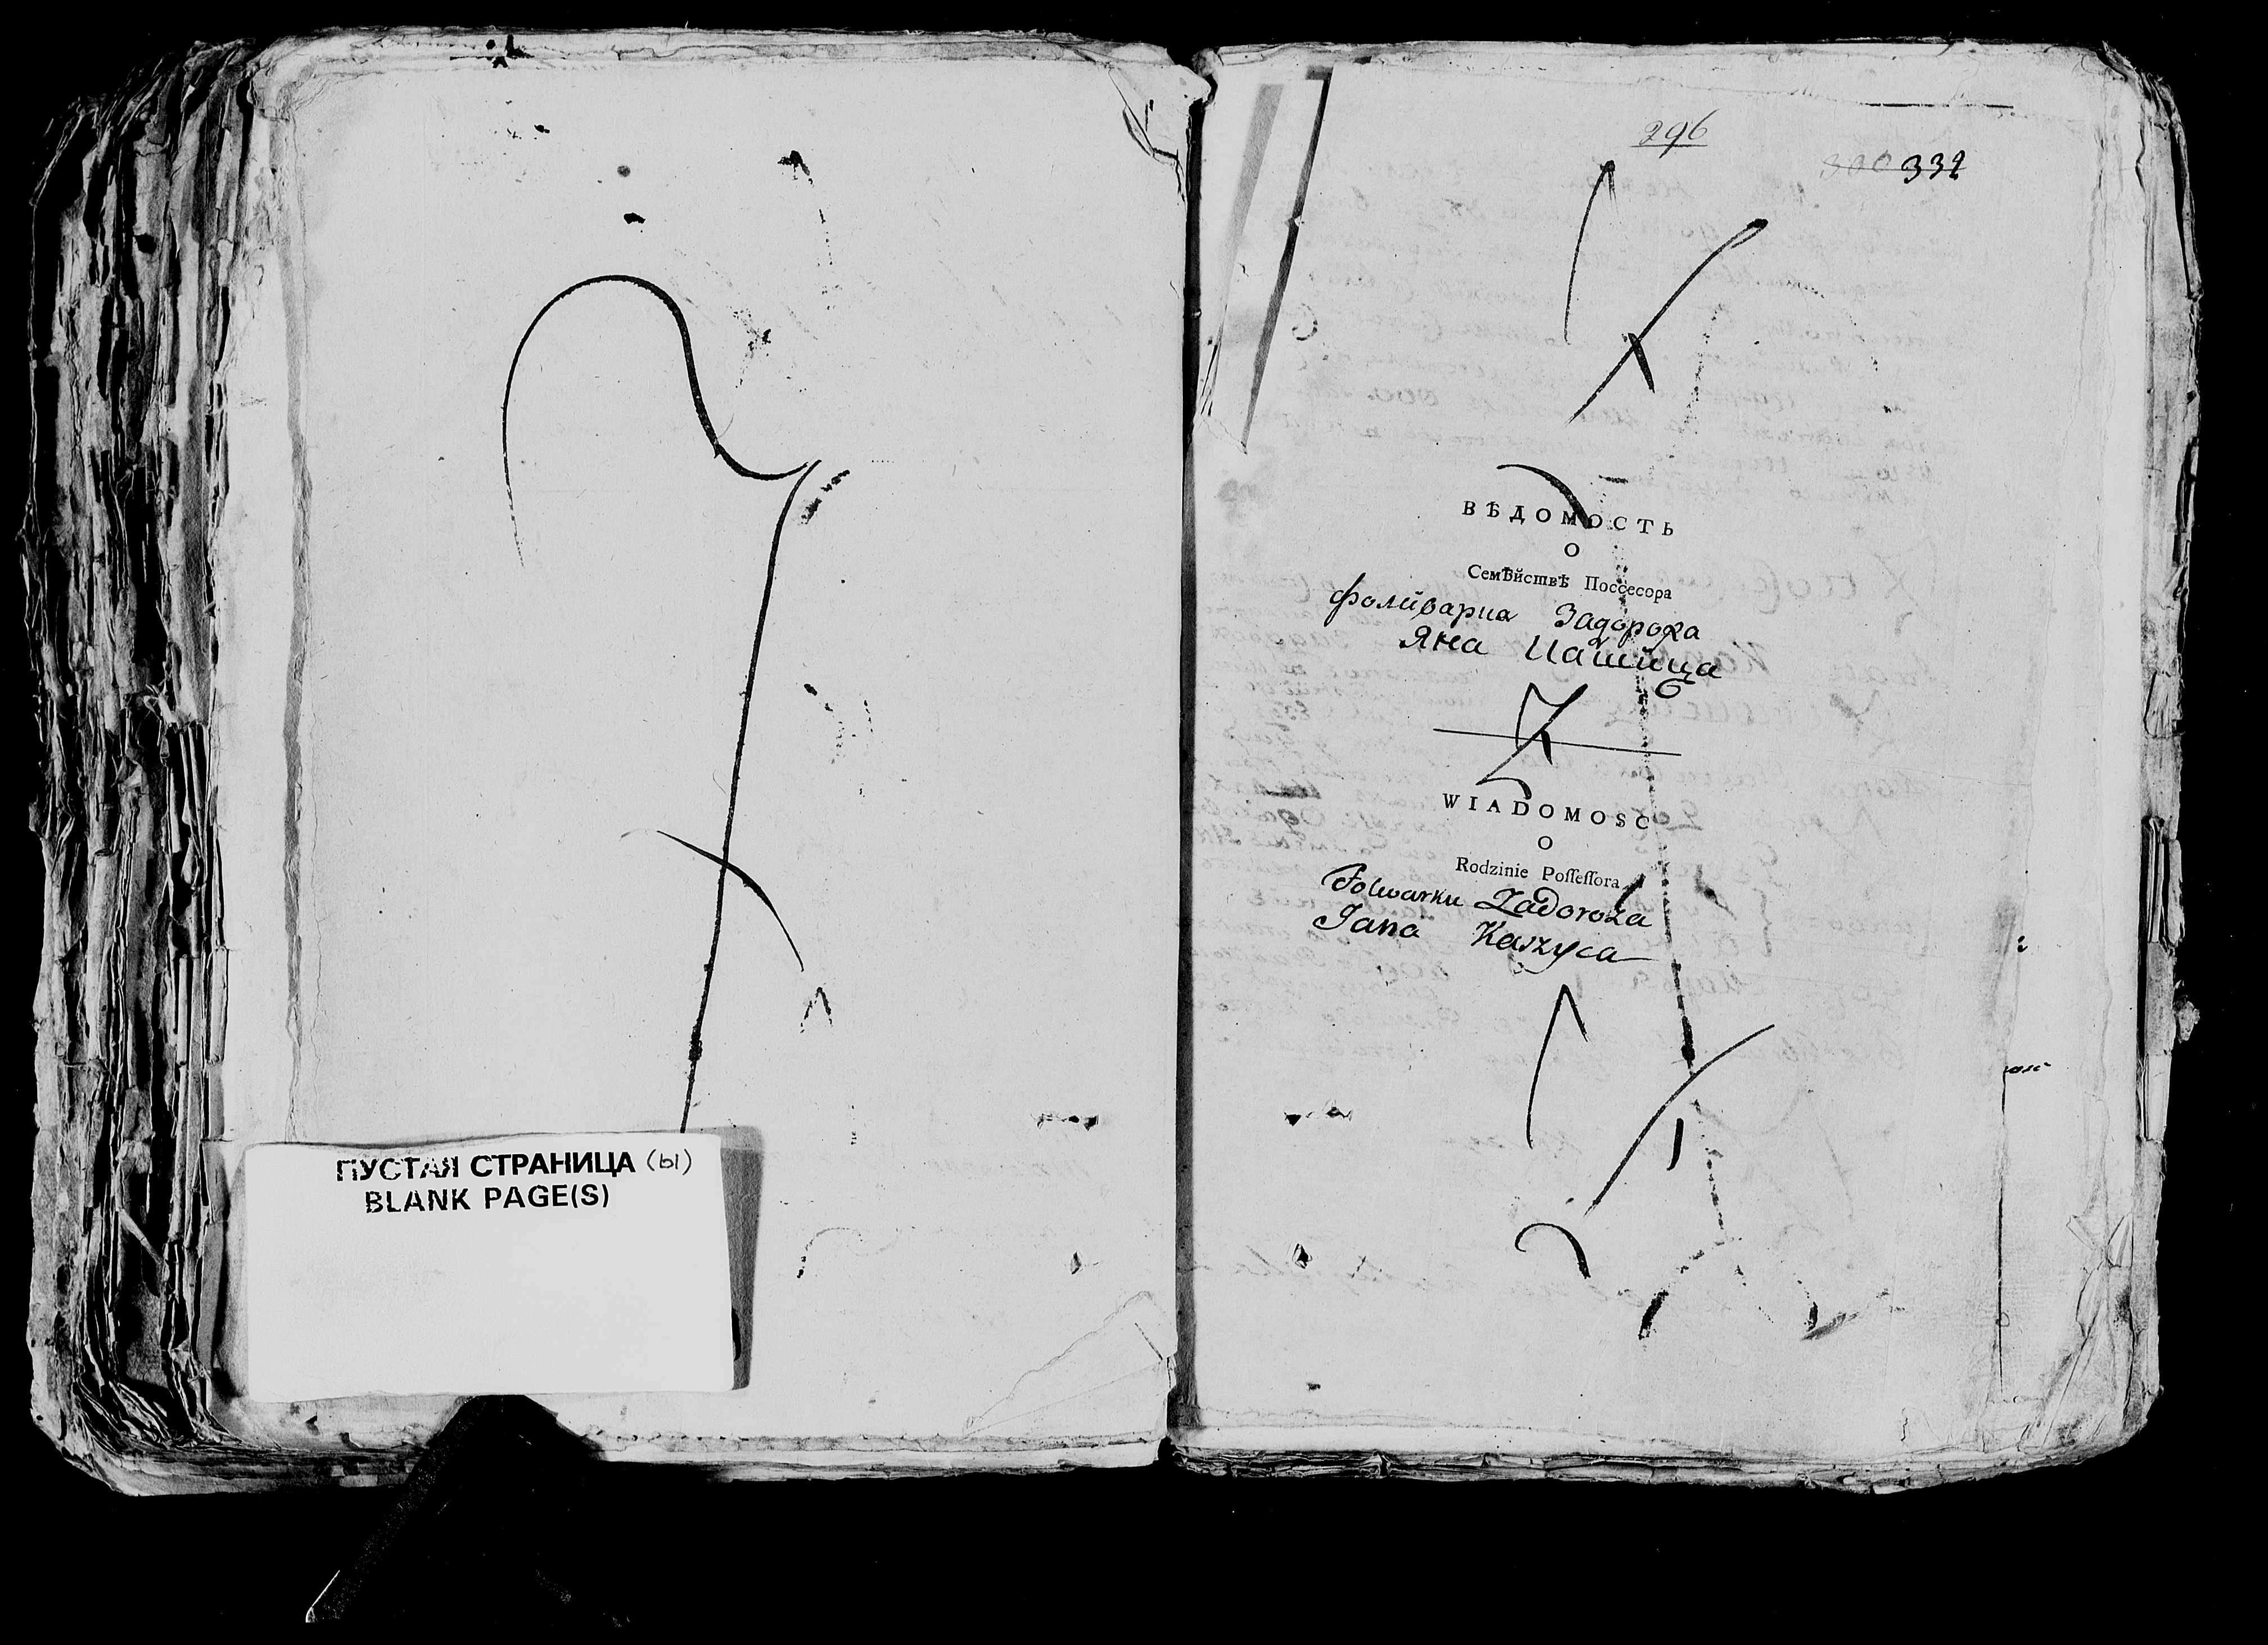 ПУСТАЯ СТРАНИЦА (ы)
BLANK PAGE(S)
296
300 332
ВѢДОМОСТЬ
О
Семѣйствѣ Поссесора
фолварка Задорожа
Яна Кашица
WIADOMOSC
O
Rodzinie Poſſeſſora
Folwarku Zadoroża
Jana Kaszyca